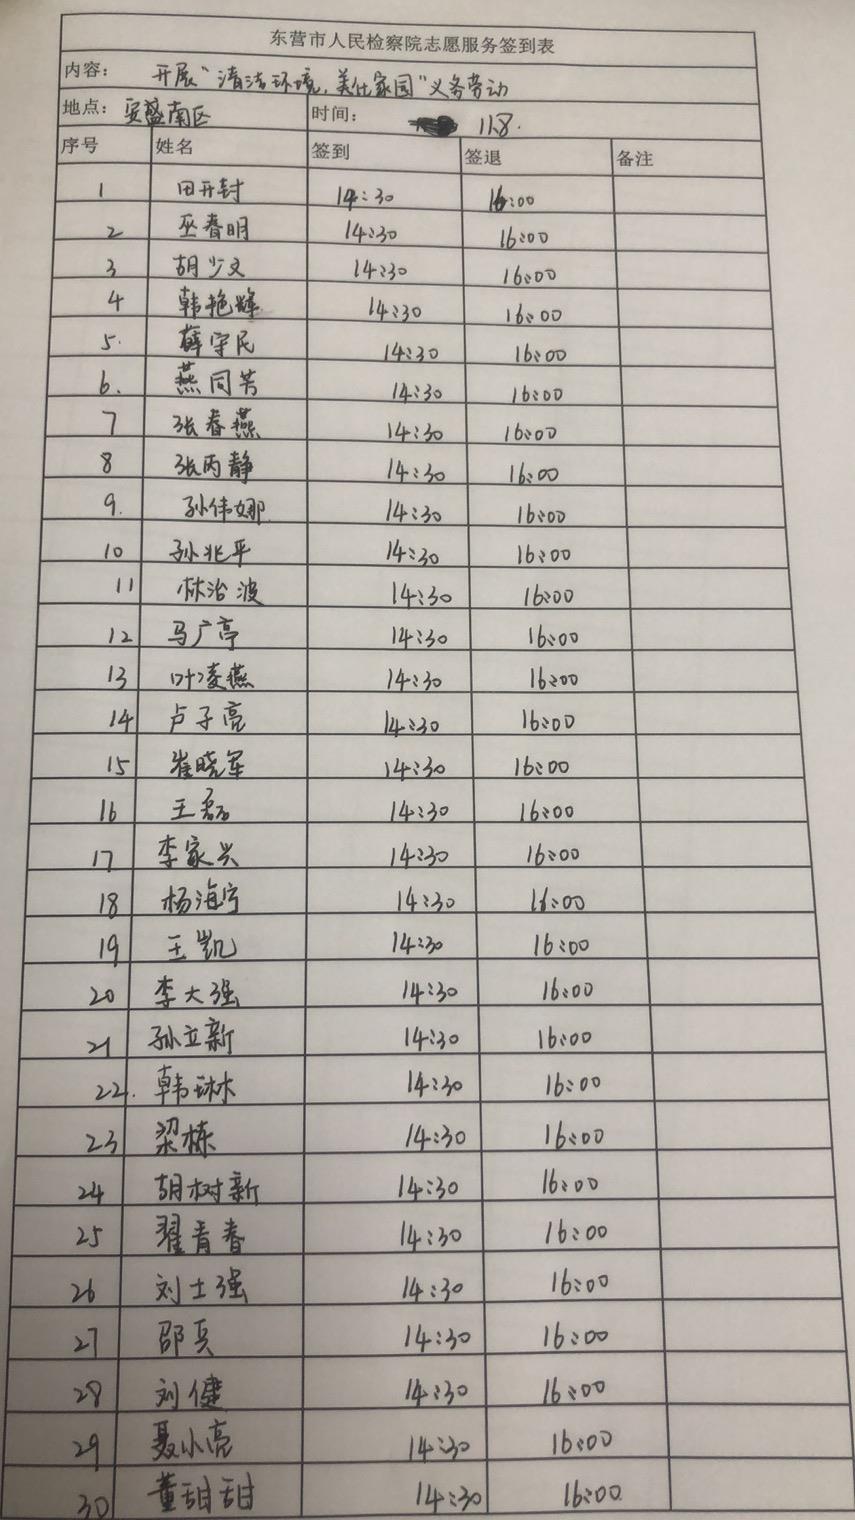 东营市人民检察院志愿服务签到表
内容： 开展“清洁环境，美化家园”义务劳动
地点：安盛南区 时间： 11.8.
序号 姓名 签到 签退 备注
1 田开封 14:30 16:00
2 巫春明 14:30 16:00
3 胡少文 14:30 16:00
4 韩艳辉 14:30 16:00
5. 薛守民 14:30 16:00
6. 燕同芳 14:30 16:00
7 张春燕 14:30 16:00
8 张丙静 14:30 16:00
9. 孙伟娜 14:30 16:00
10 孙兆平 14:30 16:00
11 林治波 14:30 16:00
12 马广亭 14:30 16:00
13 叶凌燕 14:30 16:00
14 卢子亮 14:30 16:00
15 崔晓军 14:30 16:00
16 王磊 14:30 16:00
17 李家兴 14:30 16:00
18 杨海宁 14:30 16:00
19 王凯 14:30 16:00
20 李大强 14:30 16:00
21 孙立新 14:30 16:00
22. 韩琳 14:30 16:00
23 梁栋 14:30 16:00
24 胡树新 14:30 16:00
25 翟青春 14:30 16:00
26 刘士强 14:30 16:00
27 邵兵 14:30 16:00
28 刘健 14:30 16:00
29 聂小亮 14:30 16:00
30 董甜甜 14:30 16:00